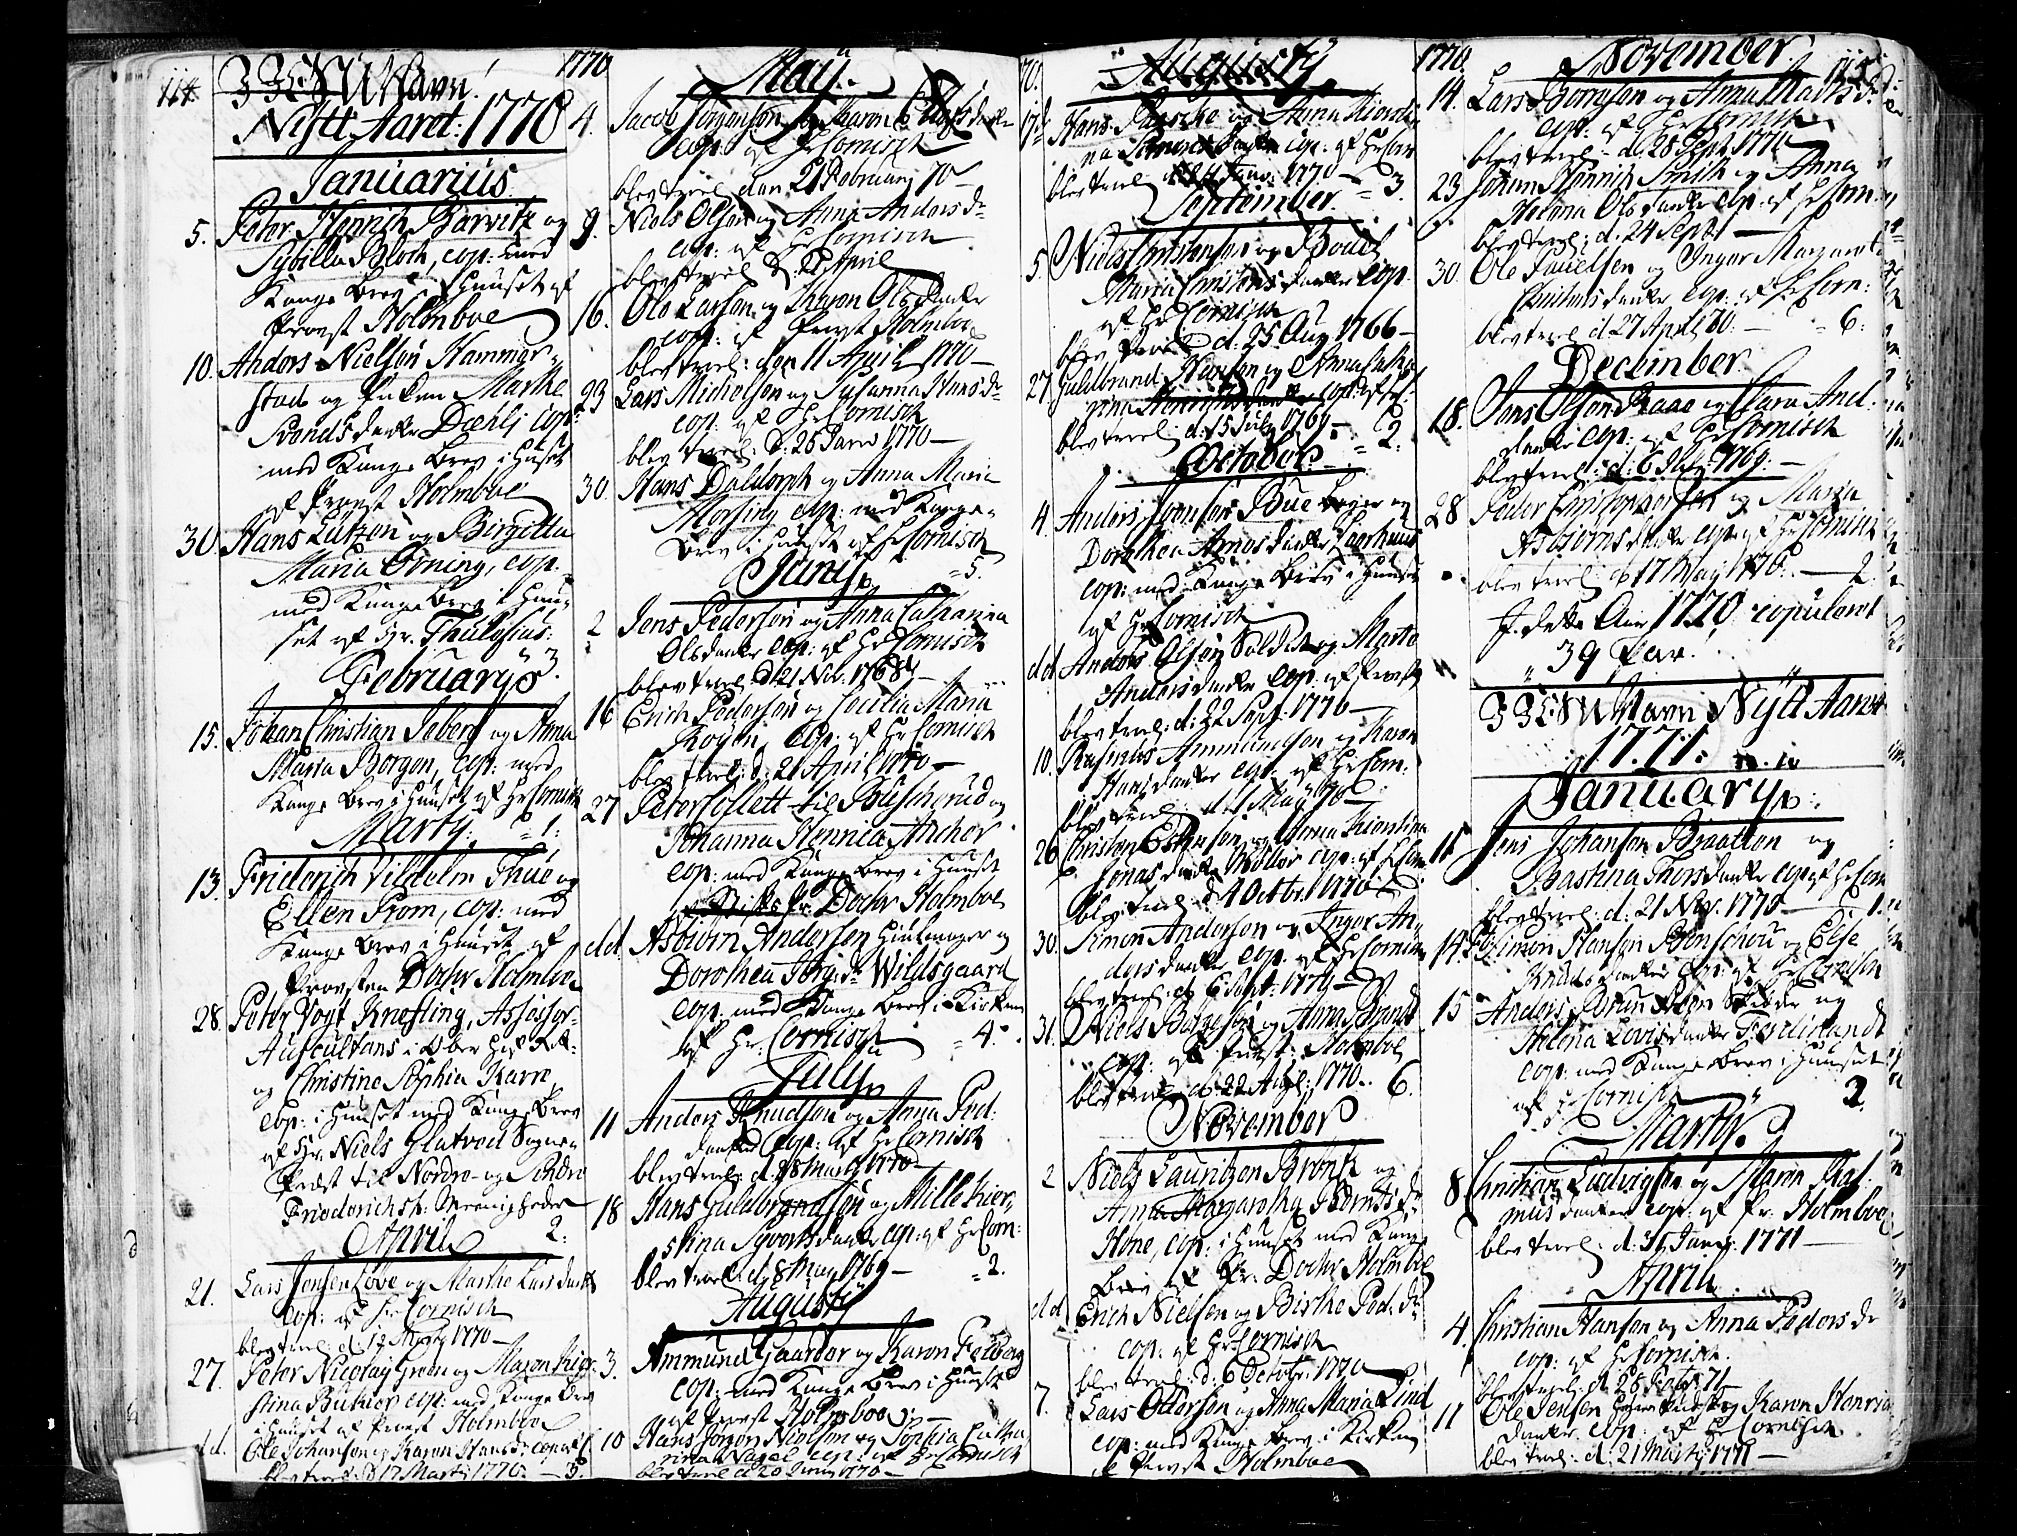 114.
J JESU Navn!
Nÿtt Aaret: 1770
Januarius
5. Peter Henrich Barwitz og
Sybilla Bloch, cop: med
Konge Brev i Huuset af
Provst Holmboe
10. Anders Nielsen Hammer-
stad og
Svendsdaatter Dæhli cop:
med Konge Brev i Huset
af Provst Holmboe
30. Hans Lützen og Birgitta
Maria Gröning, cop.
med Konge Brev i Huu-
set af Hr. Thulesius.
3.
Februarÿ
15. Johan Christian Seberg og Anna
Maria Borgen, cop: med
Konge Brev i Huuset af Hr Cornisch
Martÿ. = 1:
13. Friderich Vilhelm Thue og
Ellen Prom, cop: med
Konge Brev i Huuset af
Provsten Doctor Holmboe
28. Peter Vogt Knefling, Assessor-
Auscultans i Ober Hof Ret-
og Christine Sophia Karre,
cop: i Huuset med Konge Brev
af Hr. Niels Glatved Sogne-
Præst til Nordre- og Söndre
Friederichsh: Menigheder
April 2:
21. Lars Jensen Love og Marthe Larsdaatter
cop: af Hr Cornisch
blev trol: d. 12 Martÿ 1770-
27. Peter Nicolay Green og Maren Kier-
stina Bukier cop: med Konge Brev
i Huuset af Provst Holmboe
dd. Ole Johansen og Karen Hansdr cop: af C
blev trol: d 17 Martÿ 1770. - 3.
1770
Maÿ.
4. Jacob Jörgensen og Karen Olufsdaatter
cop: af Hr Cornisch
blev trol: den 21 February 70-
9. Niels Olsen og Anna Andersdr
cop: af Hr Cornisch
blev trol: d: April
16. Ole Larsen og Karen Olsdaatter
cop: af Provst Holmboe
blev trol: den 11 April 1770-
23 Lars Michelsen og Susanna Hansdr
cop: af Hr Cornisch
blev trol: d: 26 Janv 1770-
30. Hans Daldorph og Anna Maria
Morsing cop: med Konge-
Brev i Huuset af Hr Cornisch
Junÿ = 5.
2 Jens Pedersen og Anna Catharina
Olsdaatter cop: af Hr Cornisch
blev trol: d 21 Nov. 1768-
16 Erich Pedersen og Cecilia Maria
Röyen, cop: af Hr Cornisch
blev trol: d: 21 April 1770-
27 Peter Collett til Buscherud og
Johanna Henrica Ancher
cop: med Konge Brev i Huuset
af Doctor Holmboe
dd. Asbiörn Andersen Hiulmager og
Dorothea Jörgdr Wildsgaard
cop: med Konge Brev i Kirken
af Hr. Cornisch = 4.
Julÿ
11 Anders Knudsen og Anna Ped:
daatter cop: af Hr Cornisch
blev trol: d. 28 Martÿ 1770-
18 Hans Guldbrandsen og Mille Kier-
stina Syvertsdaatter cop: af Hr Corn:
blev trol: d. 8 May 1769- = 2.
Augustÿ
3. Ammund Gaarder og Karen Feiberg
cop: med Konge Brev i Huuset
af Provst Holmboe; -
10 Hans Jörgen Nielsen og Sophia Catha
rina Nagel cop: af Hr Cornisch
blev trol d 20 Juny 1770-
Augustÿ
17de Hans og Anna Kiersti-
na daatter cop: af Hr Corn
blev trol: d 24 Janv: 1770- = 3.
September.
5. Niels Christensen og Bodel
Maria Christensdaatter cop.
af Hr Cornisch
blev trol: d: 25 Aug 1766-
27 Guldbrand Hansen og Anna Catha
rina Henrichsdaatter cop: af Hr
blev trol: d. 15 July 1769- = 2:
October
4. Anders Joensen Büe Bager og
Dorothea Amosdaatter Saxhuus
cop: med Konge Brev i Huuset
af Hr Cornisch
dd Anders Olsen Soldat og Marte
Andersdaatter cop: af Provst
blev trol: d: 22 Sept: 1770-
10. Rasmus Ammundsen og Karen
Hansdaatter cop: af Hr Corn:
blev trol: d. 1 May 70-
26 Christen Estensen og Anna Kierstina
Jonasdaatter Möller cop: af Hr Corn
blev trol: d 4 Octbr: 1770-
30. Simon Andersen og Inger An-
dersdaatter cop. af Hr Cornisch
blev trol: d. 6 Sept: 1770-
31. Niels Börgesen og Anna Brynildr
cop: af Provst: Holmboe
blev trol: d. 22 Aug: 1770.. 6.
November
2 Niels Lauritzen Bröntz og
Anna Margaretha Berntsdr
Hone, cop: i Huuset med Konge
Brev af Pr: Doctor Holmboe
dd Erich Nielsen og Birthe Ped. dr
cop: af Hr Cornisch
blev trol: d: 6 October 1770
7. Lars Ottersen og Anna Maria Lind
cop: med Konge Brev i Kirken
af Provst Holmboe
1770
November. 115.
14. Lars Börgesen og Anna Madtsdr
cop: af Hr Cornisch
blev trol: d. 28 Sept 1770
23 Johan Henrich Smith og Anna
Helena Olsdaatter cop: af Hr Corn
blev trol: d. 24 Sept: -
30. Ole Poulsen og Inger Margaret
Christensdaatter cop: af Hr Corn:
blev trol: d 27 April 70.- = 6:
December.
18. Jens Olsen Raae og Clara And.
daatter cop: af Hr Cornisch
blev trol: d: 6 1769:-
28 Peder Christophersen og Maria
Asbiörnsdaatter cop: af Hr Cornisch
blev trol: d 17 May 1770.- 2.
J dette Aar 1770 copuleret
39 Par.
J JESU Navn Nÿtt Aaret
1771:
Januarÿ.
11 Jens Johansen Braatten og
Bastina Thorsdaatter cop: af Hr Corn
blev trol: d: 21 Nov. 1770- 1.
14. Simon Hansen Grenschou og Else
Knudsdaatter cop: af Hr Cornisch
15 Anders Brun og
Helena Lovisdaatter Ferdinandt
cop: med Konge Brev i Huuset
af Hr Cornisch 3.
Martÿ.
8 Christian Ludvigsen og Maren Ras-
musdaatter cop: af Pr. Holmboe
blev trol: d: 31 Janv: 1771-
April.
4. Christian Hansen og Anna Pedersdr
cop: af Hr Cornisch.
blev trol: d: 28 Febr 71-
11 Ole Jensen og Karen Henric
daatter cop: af Hr Cornisch
blev trol: d. 21 Martÿ 1771-